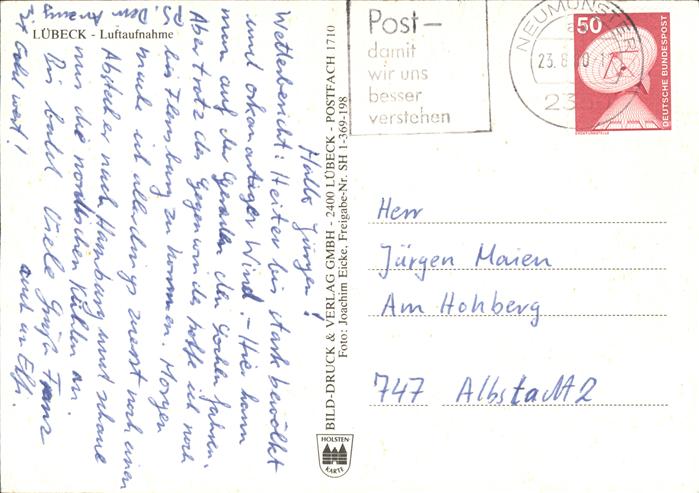 LÜBECK - Luftaufnahme
Hallo Jürgen!
Wetterbericht: Heiter bis stark bewölkt
und orkanartiger Wind. - Hier kann
man auf der Geraden den Gochen fahren.
Aber trotz des Gegenwindes hoffe ich noch
bis Flensburg zu kommen. Morgen
mache ich allerdings zuerst noch einen
Abstecher nach Hamburg und schaue
mir die nordischen Kühlen an.
Bis bald Viele Grüße Franz
auch an Elfr.
PS. Dem Anzeig
ist Gold wert!
BILD-DRUCK & VERLAG GMBH - 2400 LÜBECK - POSTFACH 1710
Foto: Joachim Eicke, Freigabe-Nr. SH 1-369-198
HOLSTEN-
KARTE
Post-
damit
wir uns
besser
verstehen
NEUMÜNSTER
23. 8.
50
DEUTSCHE BUNDESPOST
ERDEFUNKSTELLE
Herr
Jürgen Maien
Am Hohberg
747 Albstadt 2